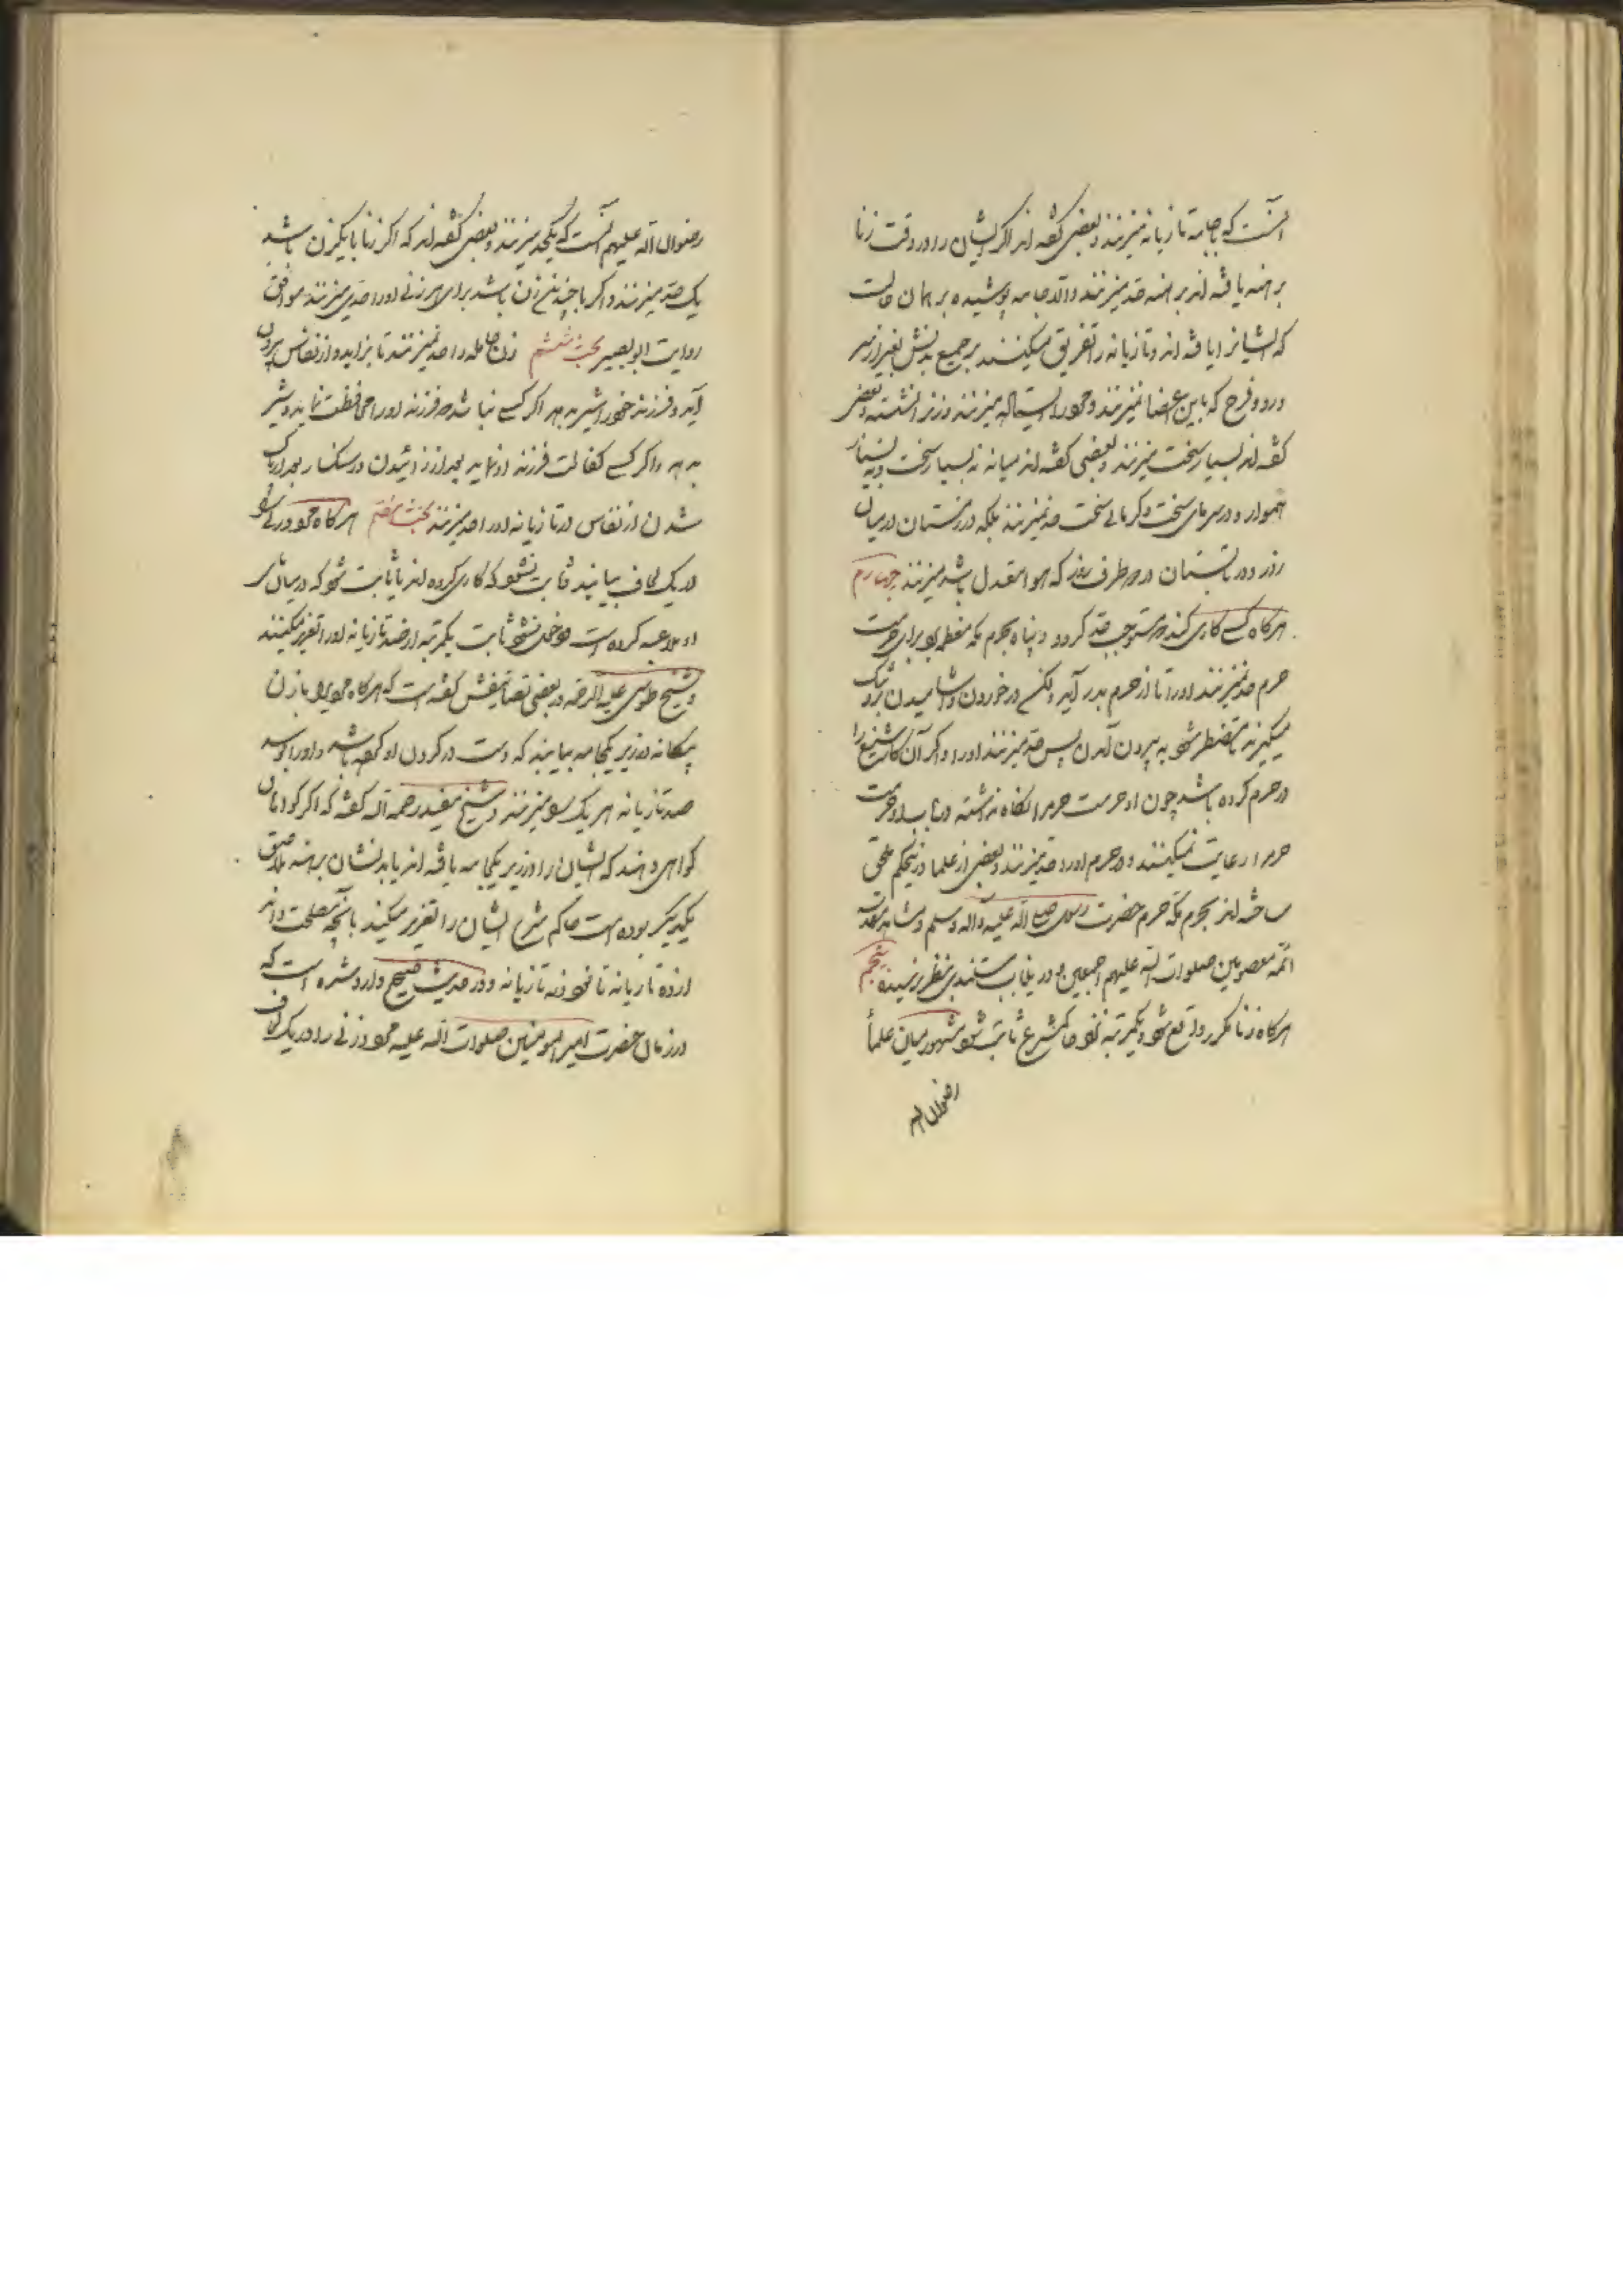 آنست که با جامه تازیانه میزنند و بعضی گفته اند اگر ایشان را در وقت زنا
برهنه یافته اند برهنه حد میزنند والا جامه پوشیده بر همان حالت
که ایشانرا یافته اند و تازیانه را تفریق میکنند بر جمیع بدنش بغیر از سر
و رو و فرج که باین اعضا نمیزنند و مرد را ایستاده میزنند و زنرا نشسته و بعضی
گفته اند بسیار سخت میزنند و بعضی گفته اند میانه نه بسیار سخت و نه بسیار
هموار و در سرمای سخت و گرمای سخت حد نمیزنند بلکه در زمستان در میان
روز و در تابستان در دو طرف روز که هوا معتدل باشد میزنند چهارم
هرگاه کسی کاری کند که مستوجب حد گردد و پناه بحرم مکه معظمه برد برای حرمت
حرم حد نمیزنند او را تا از حرم بدر آید و لکن در خوردن و آشامیدن برو تنگ
میگیرند تا مضطر شود به بیرون آمدن پس حد میزنند او را و اگر آن کار شنیع را
در حرم کرده باشد چون او حرمت حرم را نگاه نداشته در باب او حرمت
حرم را رعایت نمیکنند و در حرم او را حد میزنند و بعضی از علما درین حکم ملحق
ساخته اند بحرم مکه حرم حضرت رسول صلی الله علیه و آله وسلم و مشاهد مقدسه
ائمه معصومین صلوات الله علیهم اجمعین و درین باب مستندی بنظر نرسیده پنجم
هرگاه زنا مکرر واقع شود و یکمرتبه نزد حاکم شرع ثابت شود مشهور میان علما
رضوان الله
رضوان الله علیهم آنست که یکحد میزنند و بعضی گفته اند که اگر زنا با یکزن باشد
یک حد میزنند و اگر با چندین زن باشد برای هر زنی او را حدی میزنند موافق
روایت ابو بصیر بحث ششم زن حامله را حد نمیزنند تا بزاید و از نفاس بیرون
آید و فرزند خود را شیر بدهد اگر کسی نباشد که فرزند او را محافظت نماید و شیر
بدهد و اگر کسی کفالت فرزند او نماید بعد از زائیدن در سنگسار و بعد از پاک
شدن از نفاس در تازیانه او را حد میزنند بحث هفتم هرگاه مرد و زنی را
در یک لحاف بیابند و ثابت نشود که کاری کرده اند یا ثابت شود که در میان
او ملاعبه کرده است و دخول نشود ثابت یکمرتبه از صد تازیانه او را تعزیر میکنند
و شیخ طوسی علیه الرحمه در بعضی تصانیفش گفته است که هرگاه مردی را با زن
بیگانه در زیر یکجامه بیابند که دست در گردن او کرده باشد و او را بوسد
صد تازیانه هر یک را میزنند و شیخ مفید رحمه الله گفته که اگر گواهان
گواهی دهند که ایشان را در زیر یکجامه یافته اند یا بدنشان برهنه ملاصق
یکدیگر بوده است حاکم شرع ایشان را تعزیر میکند بآنچه مصلحت داند
از ده تازیانه تا نود و نه تازیانه و در حدیث صحیح وارد شده است که
در زمان حضرت امیر المومنین صلوات الله علیه مرد و زنی را در یک لحاف